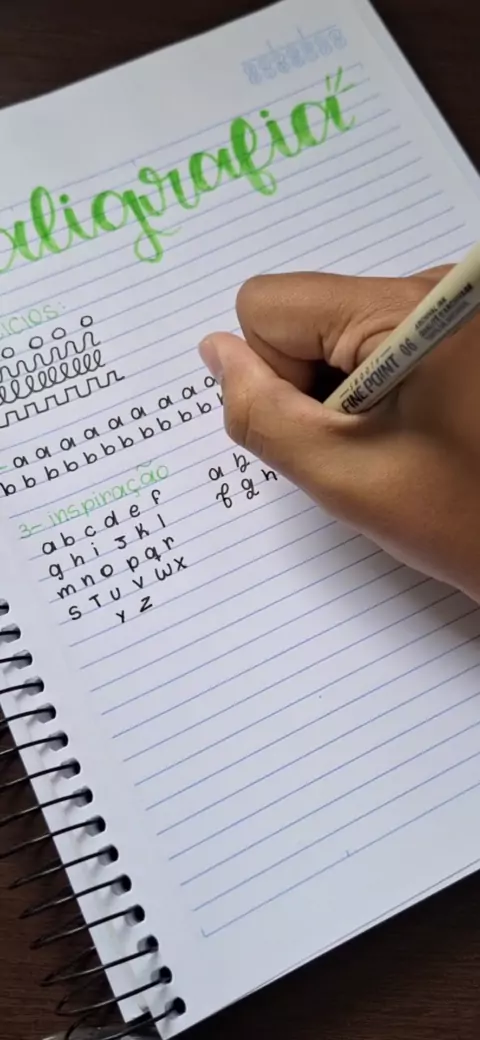 aligrafia
cícios:
a a a a a a a a
b b b b b b b b b
3- inspiração
a b c d e f
g h i J K l
m n o p q r
S T U V W X
Y Z
a b
f g h
FINE POINT 06